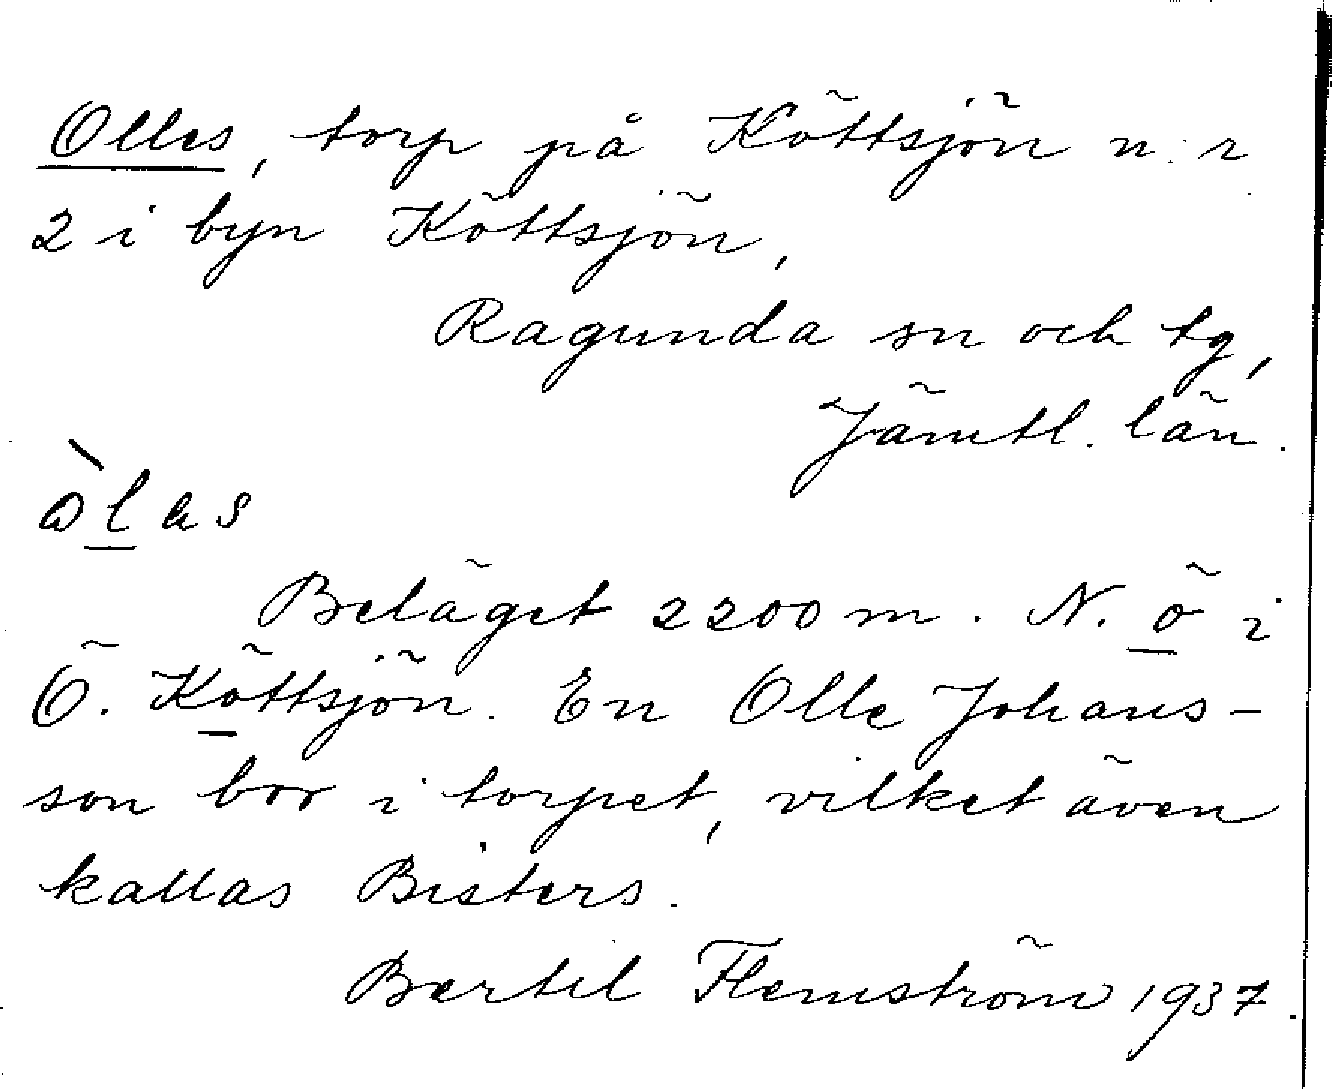 Olles, torp på Köttsjön n:r
2 i byn Köttsjön,
Ragunda sn och tg,
Jämtl. län.
òlas
Beläget 2200 m. N. ö i
Ö. Köttsjön. En Olle Johans-
son bor i torpet, vilket även
kallas Bisters.
Bertil Flemström 1937.